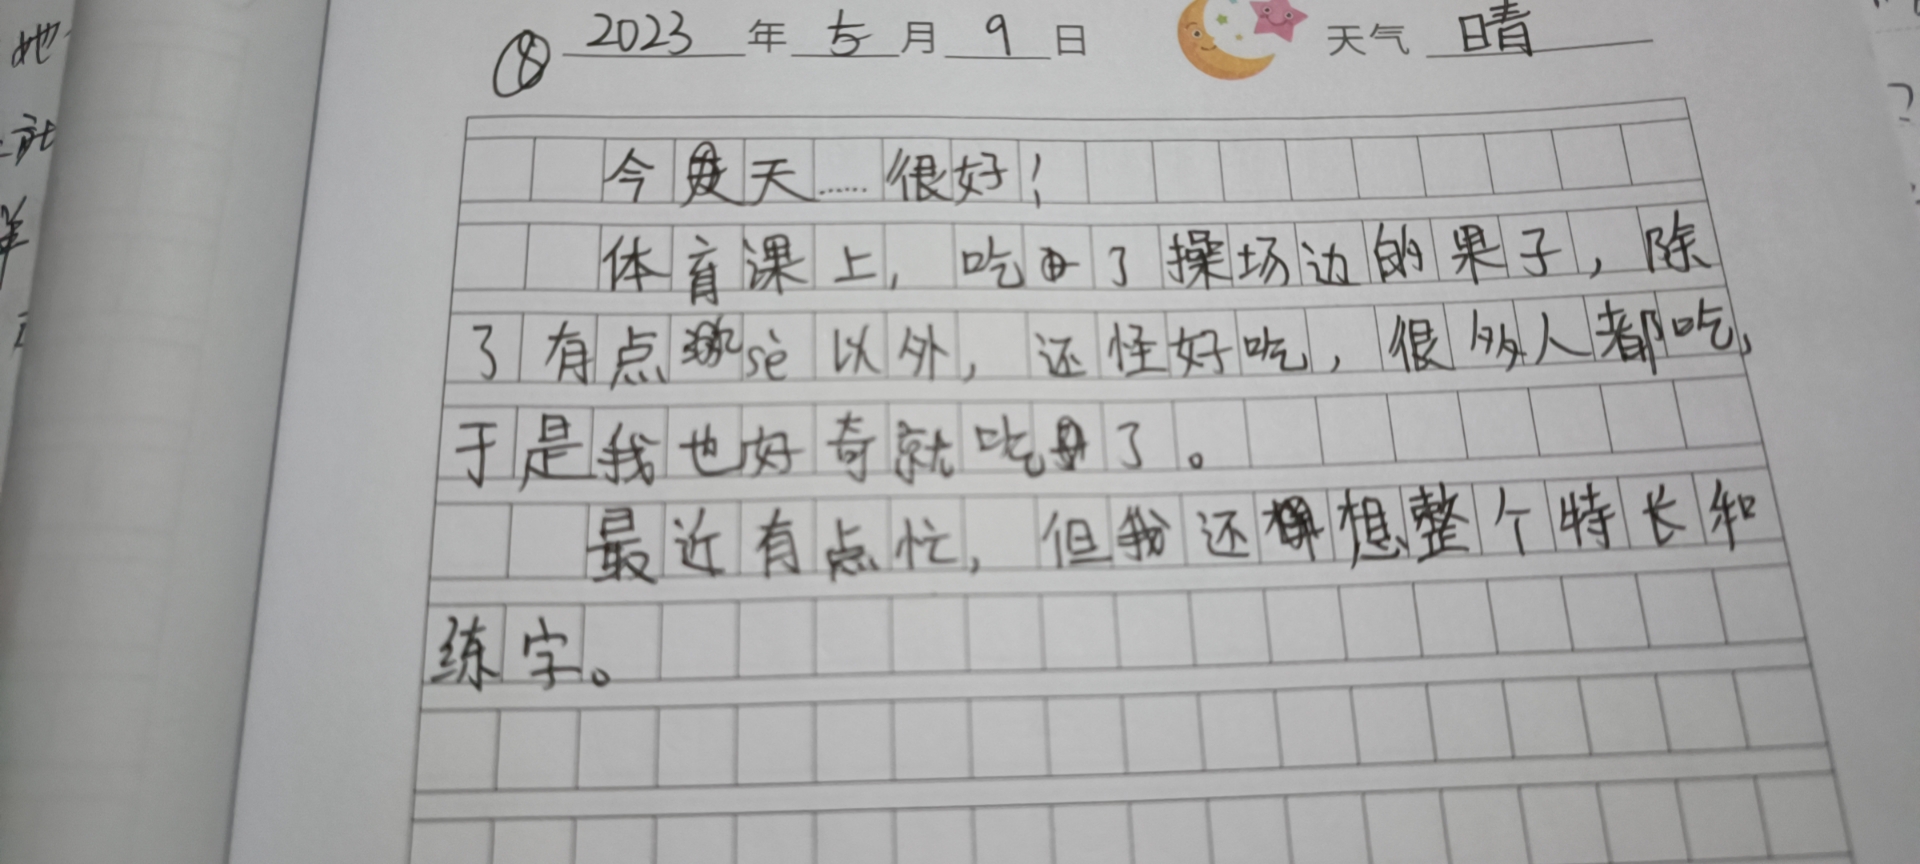 ⑧ 2023 年 5 月 9 日 天气 晴
今天……很好！
体育课上，吃了操场边的果子，除
了有点sè以外，还怪好吃，很多人都吃，
于是我也好奇就吃了。
最近有点忙，但我还想整个特长和
练字。